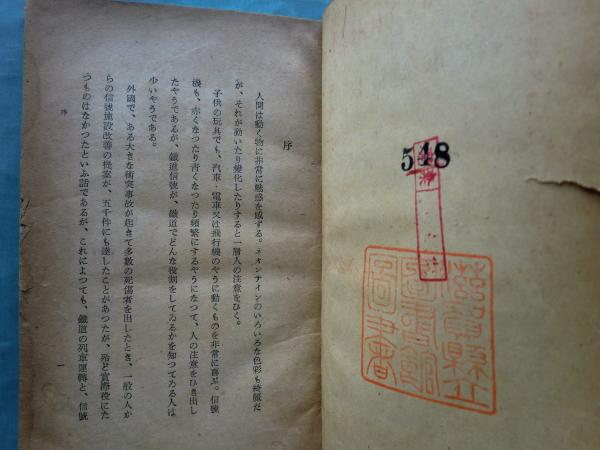 548
序
人間は動く物に非常に魅惑を感ずる。ネオンサインのいろいろな色彩も綺麗だ
が、それが動いたり變化したりすると一層人の注意をひく。
子供の玩具でも、汽車・電車又は飛行機のやうに動くものを非常に喜ぶ。信號
機も、赤くなつたり青くなつたり頻繁にするやうになつて、人の注意をひき出し
たやうであるが、鐵道信號が、鐵道でどんな役割をしてゐるかを知つてゐる人は
少いやうである。
外國で、ある大きな衝突事故が起きて多數の死傷者を出したとき、一般の人か
らの信號施設改善の提案が、五千件にも達したことがあつたが、殆ど實際役にた
つものはなかつたといふ話であるが、これによつても、鐵道の列車運轉と、信號
序
一